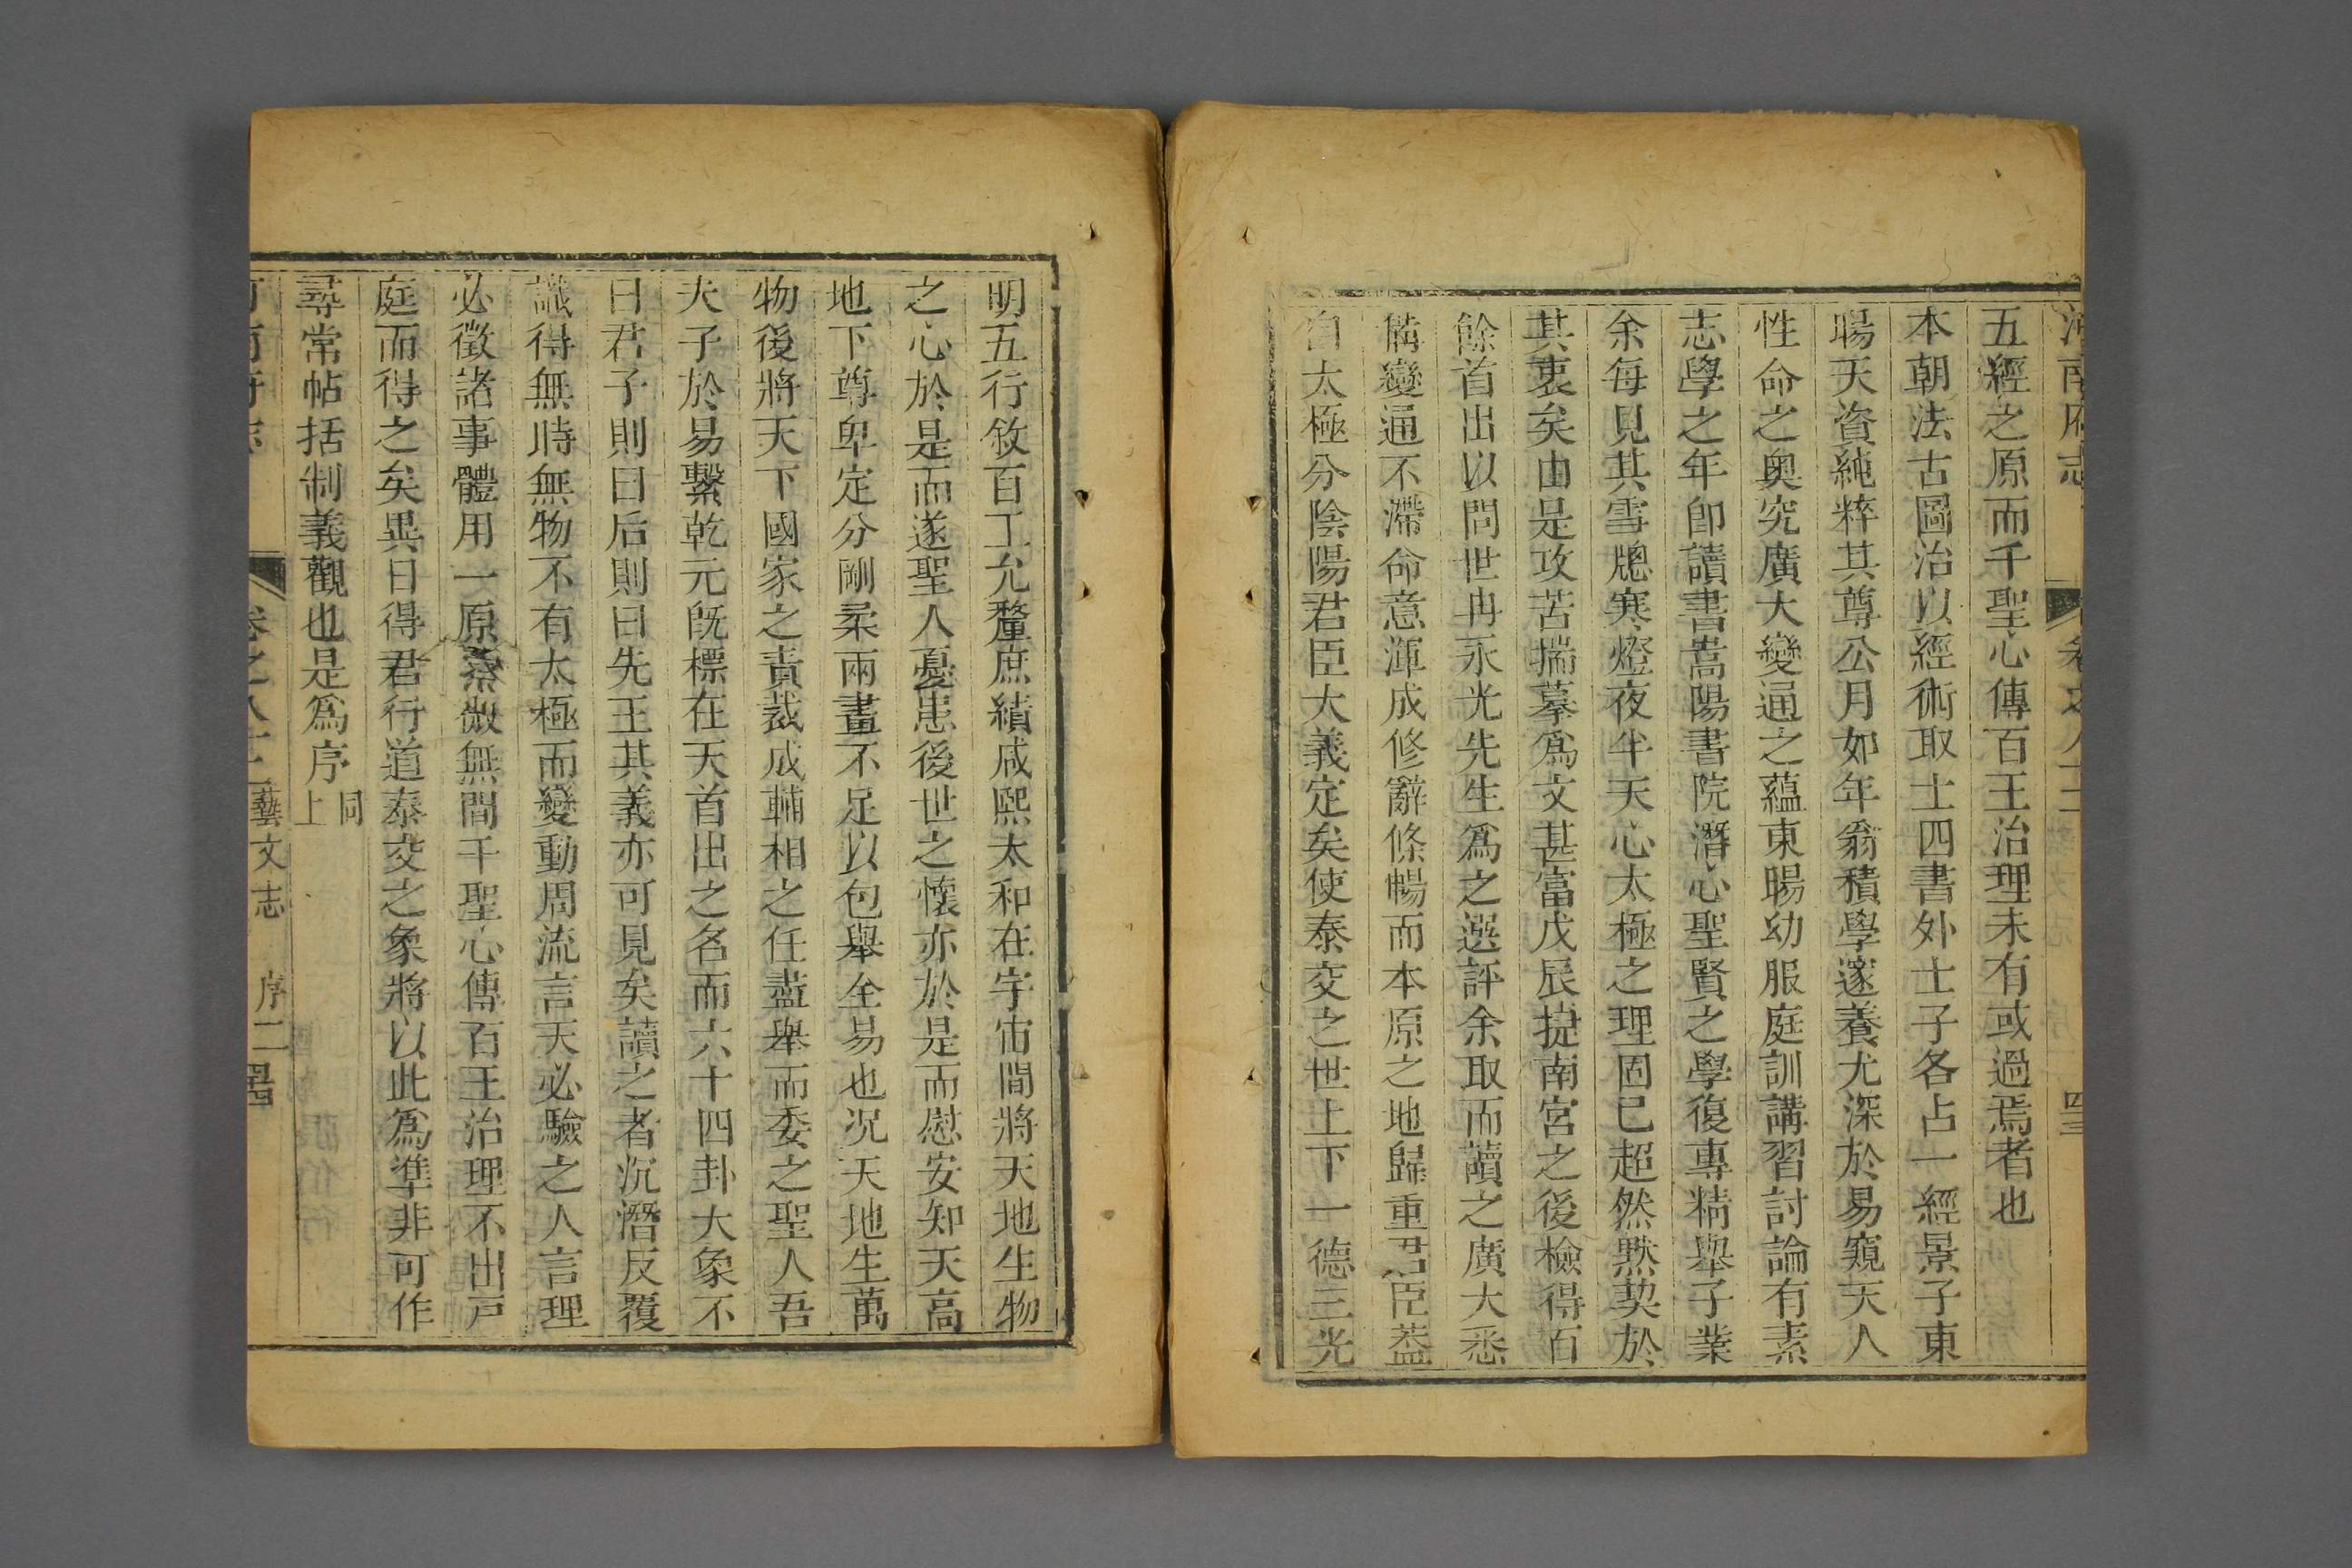 河南府志 卷之八十二 四三
五經之原而千聖心傳百王治理未有或過焉者也
本朝法古圖治以經術取士四書外士子各占一經景子東
暘天資純粹其尊公月如年翁積學邃養尤深於易窺天人
性命之奧究廣大變通之蘊東暘幼服庭訓講習討論有素
志學之年卽讀書嵩陽書院潛心聖賢之學復專精舉子業
余每見其雪牕寒燈夜半天心太極之理固已超然默契於
其衷矣由是攻苦揣摹爲文甚富戊辰捷南宮之後檢得百
餘首出以問世冉永光先生爲之選評余取而讀之廣大悉
備變通不滯命意渾成修辭條暢而本原之地歸重君臣葢
自太極分陰陽君臣大義定矣使泰交之世上下一德三光
明五行敘百工允釐庶績咸熙太和在宇宙間將天地生物
之心於是而遂聖人憂患後世之懷亦於是而慰安知天高
地下尊卑定分剛柔兩畫不足以包舉全易也況天地生萬
物後將天下國家之責裁成輔相之任盡舉而委之聖人吾
夫子於易繫乾元既標在天首出之名而六十四卦大象不
曰君子則曰后則曰先王其義亦可見矣讀之者沉潛反覆
識得無時無物不有太極而變動周流言天必驗之人言理
必徵諸事體用一原顯微無間千聖心傳百王治理不出戶
庭而得之矣異日得君行道泰交之象將以此爲準非可作
尋常帖括制義觀也是爲序 同上
河南府志 卷之八十二 藝文志 序二 四四